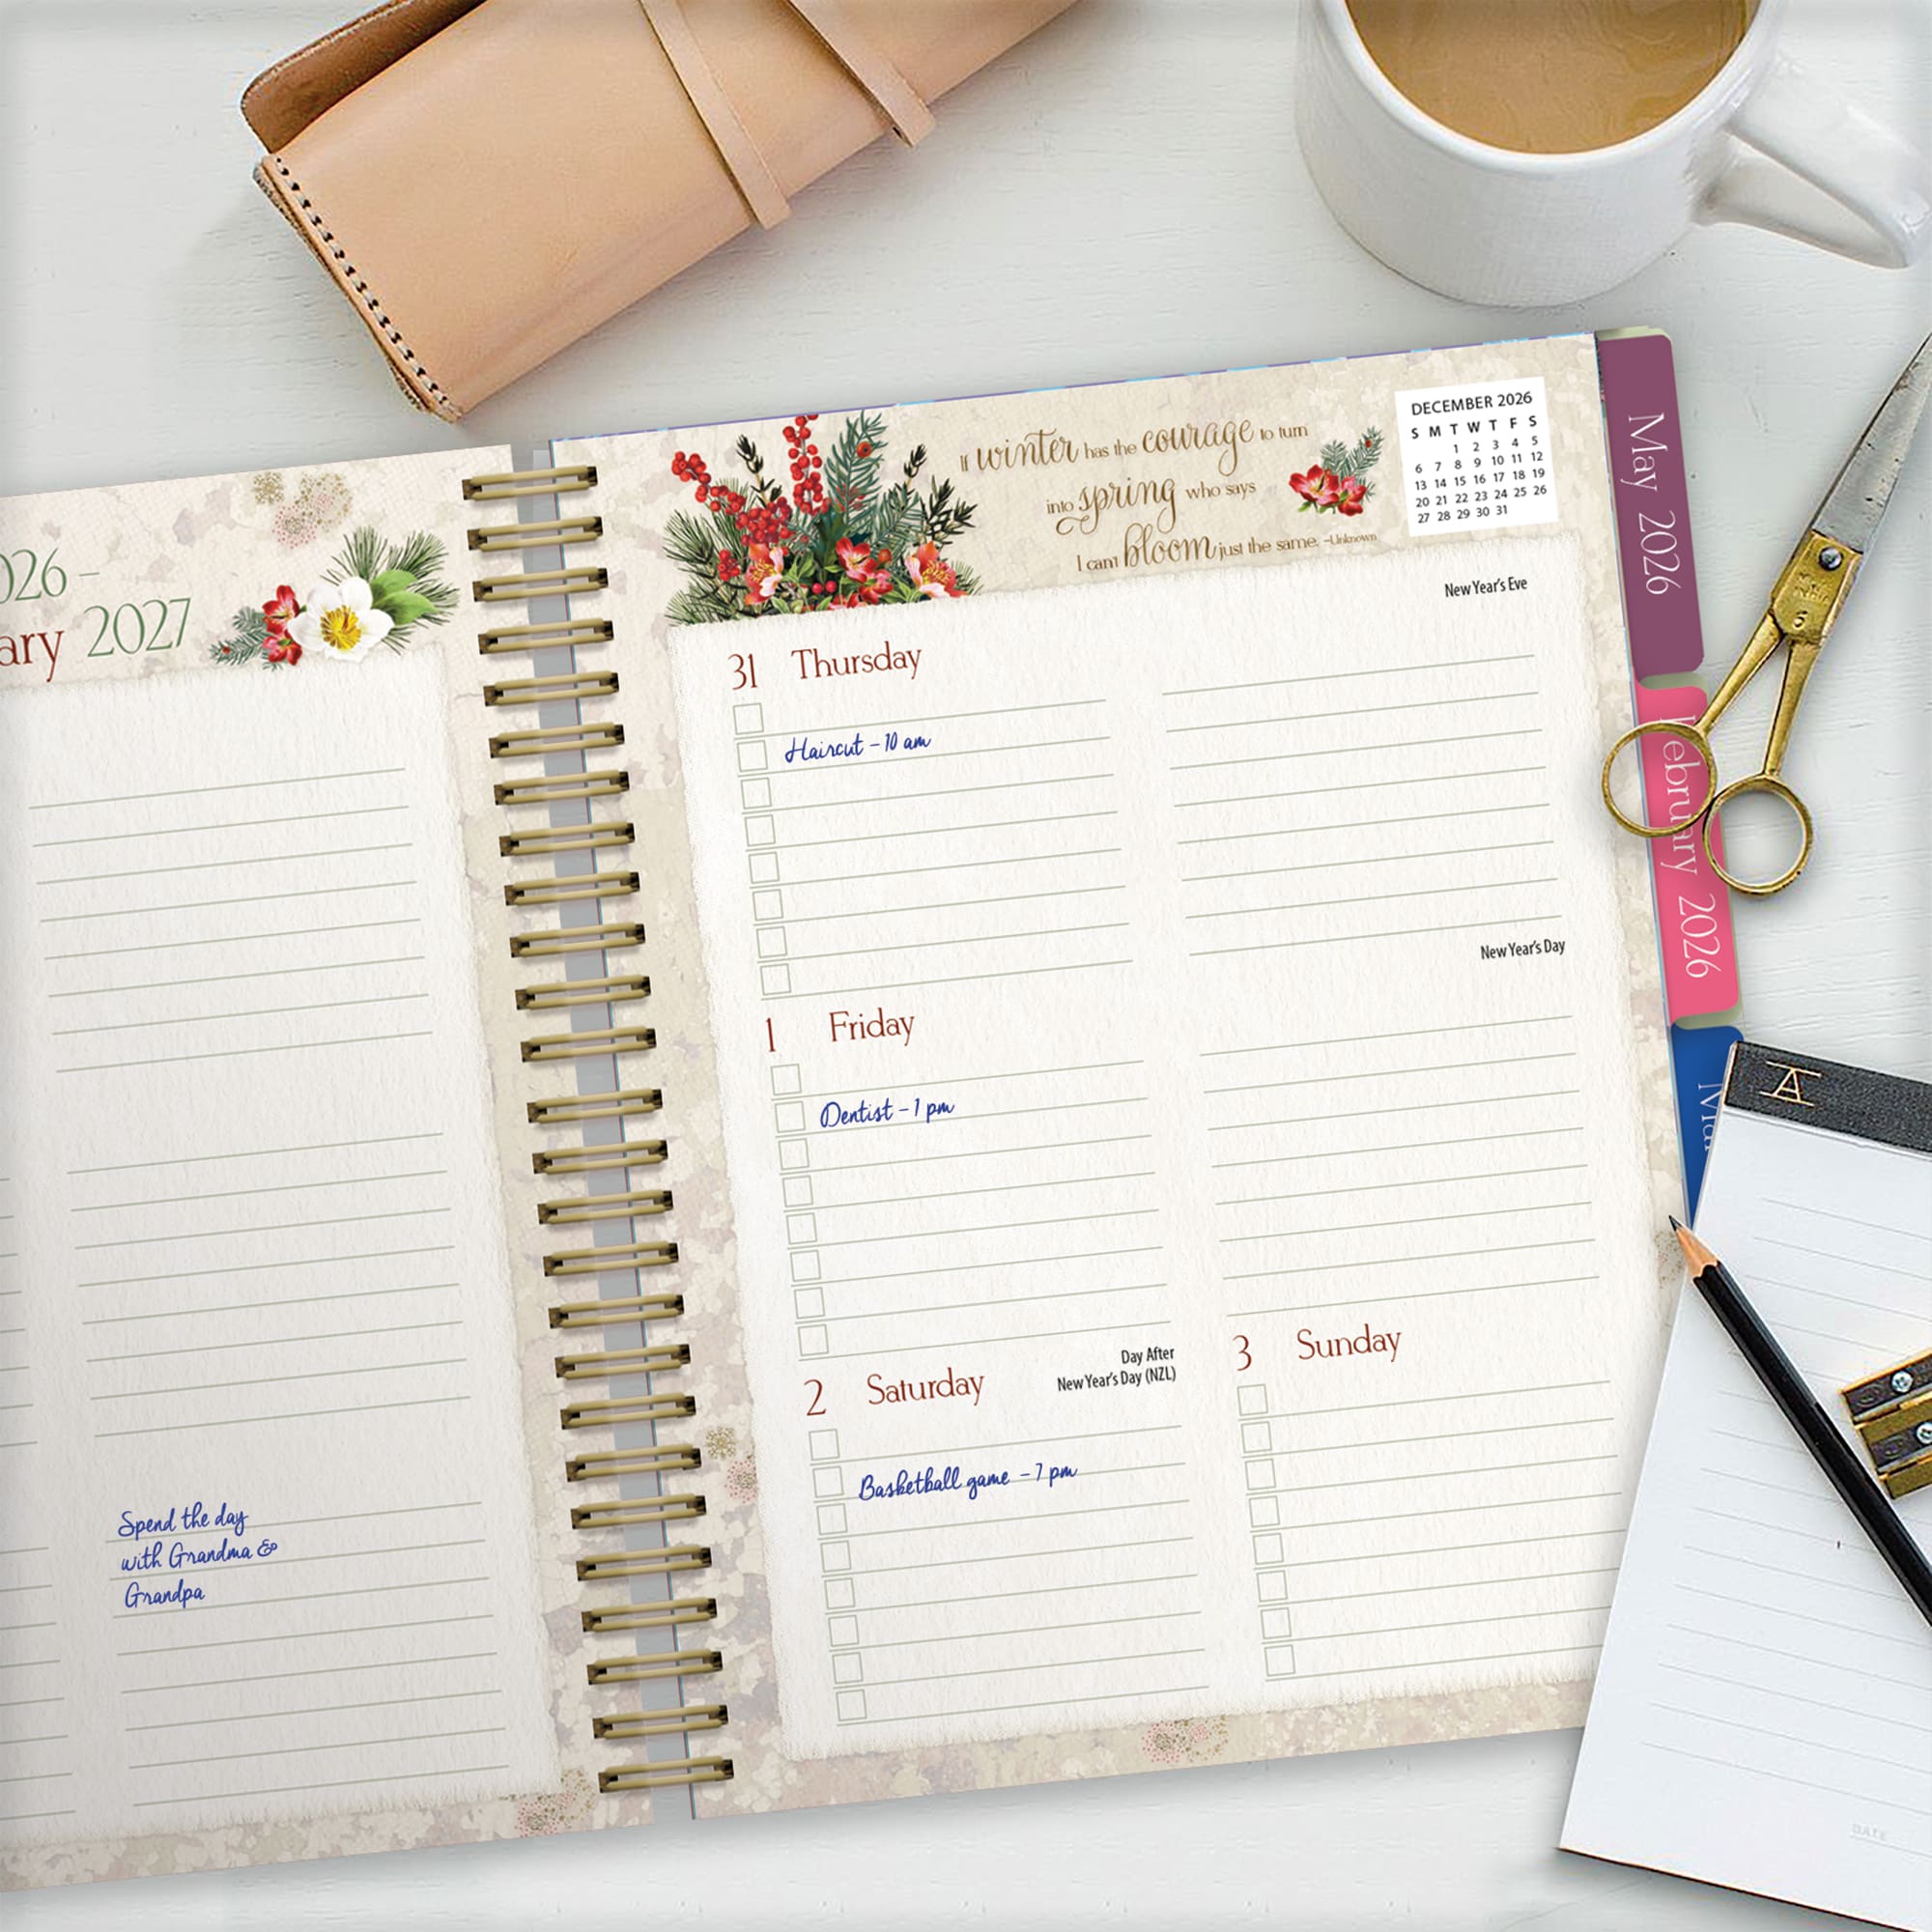 026 –
ary 2027
Spend the day
with Grandma &
Grandpa
If winter has the courage to turn
into spring who says
I can't bloom just the same. –Unknown
DECEMBER 2026
S M T W T F S
1 2 3 4 5
6 7 8 9 10 11 12
13 14 15 16 17 18 19
20 21 22 23 24 25 26
27 28 29 30 31
New Year's Eve
31 Thursday
Haircut – 10 am
New Year's Day
1 Friday
Dentist – 1 pm
Day After
New Year's Day (NZL)
2 Saturday
Basketball game – 7 pm
3 Sunday
May 2026
February 2026
Ma
A
DATE